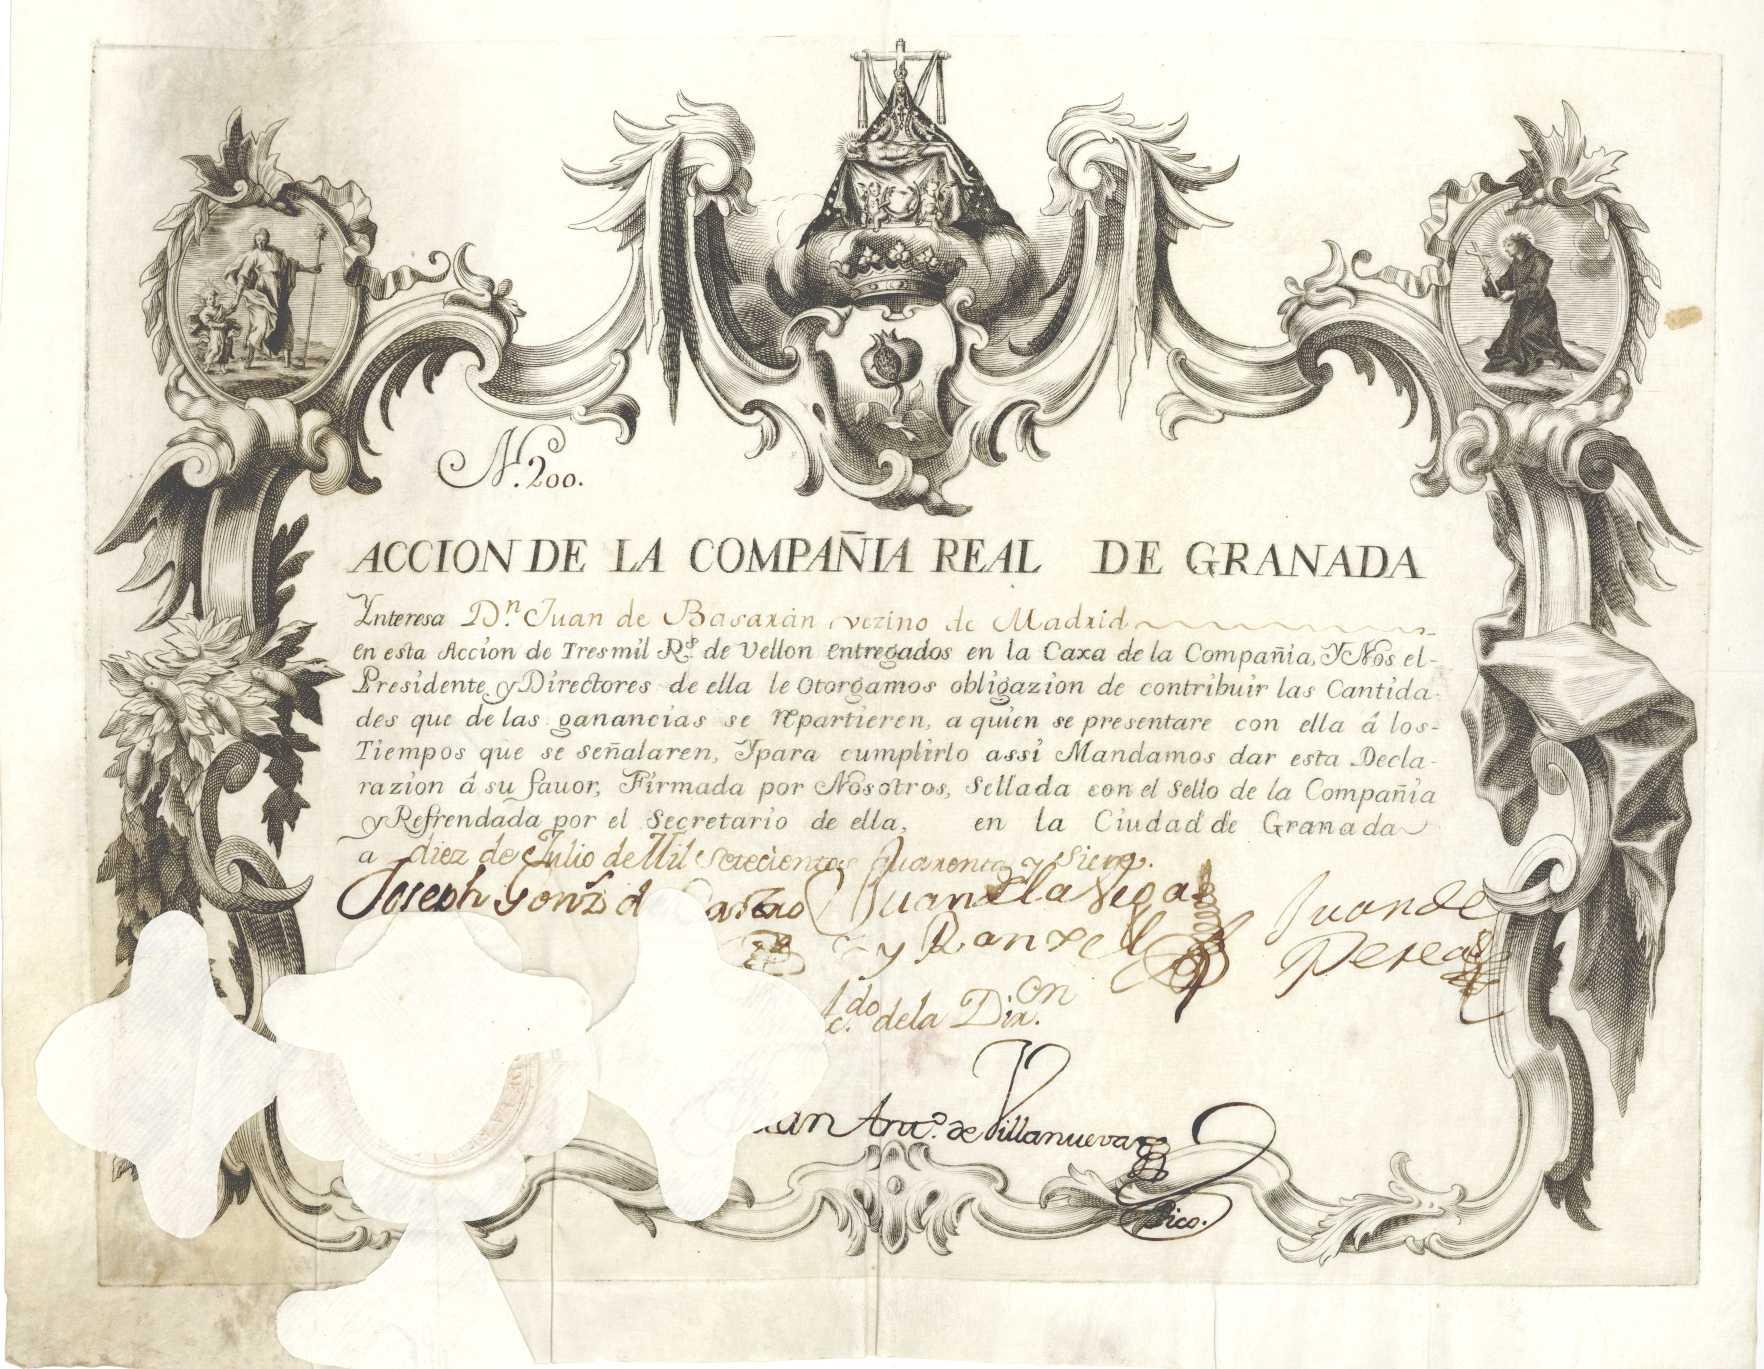 N.º 200.
ACCION DE LA COMPAÑIA REAL DE GRANADA
Ynteresa Dn. Juan de Basarán vezino de Madrid
en esta Accion de Tresmil Rs. de Vellon entregados en la Caxa de la Compañia, Y Nos el-
Presidente, y Directores de ella le Otorgamos obligazion de contribuir las Cantida-
des que de las ganancias se repartieren, a quien se presentare con ella á los-
Tiempos que se señalaren, Ypara cumplirlo assi Mandamos dar esta Decla-
razion á su favor, Firmada por Nosotros, Sellada con el Sello de la Compañia
y Refrendada por el Secretario de ella, en la Ciudad de Granada
a diez de Julio de Mil Setecientos Quarenta y Siete.
Joseph Gonz d Castro Juan de la Vega Juan de
y Ranxel Perea
de la Dixon.
Anto. de Villanueva
Pico.